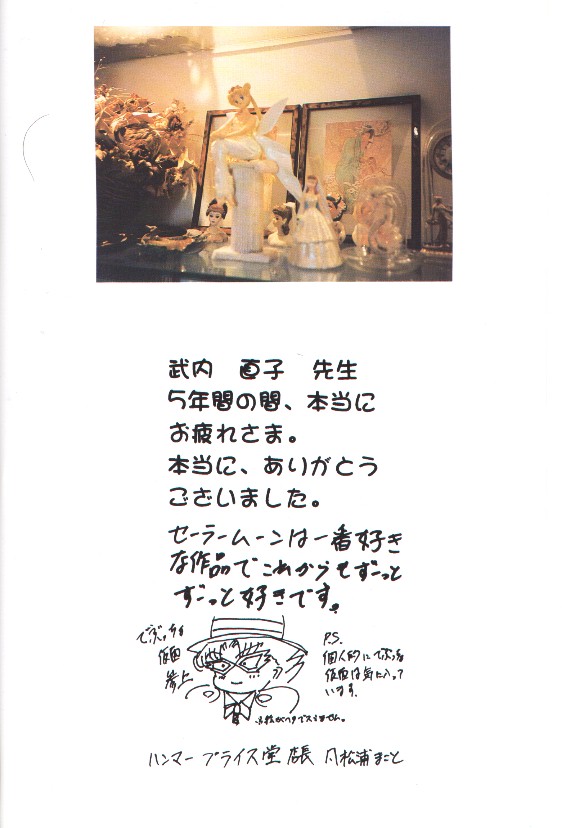 武内　直子　先生
5年間の間、本当に
お疲れさま。
本当に、ありがとう
ございました。
セーラームーンは一番好き
な作品でこれからもずーっと
ずーっと好きです。
でぶっちょ
仮面
参上
P.S.
個人的にでぶっちょ
仮面は気に入って
います。
※絵がヘタですみません。
ハンマープライス堂 店長 松浦まこと